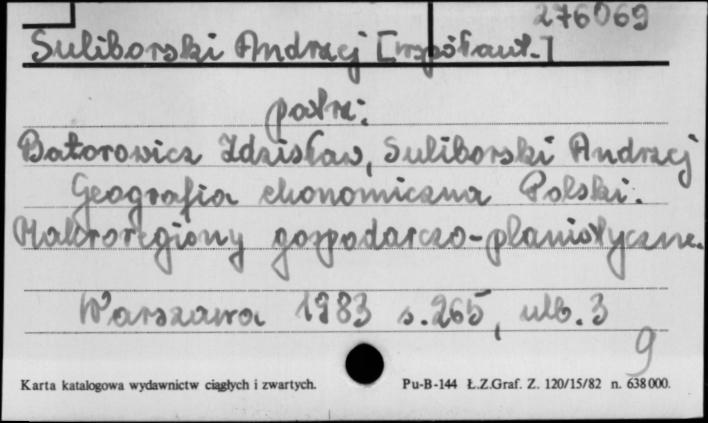 276069
Suliborski Andrzej [współaut.]
patrz:
Batorowicz Zdzisław, Suliborski Andrzej
Geografia ekonomiczna Polski.
Makroregiony gospodarczo-planistyczne.
Warszawa 1983 s. 265, ulb. 3
9
Karta katalogowa wydawnictw ciągłych i zwartych. Pu-B-144 Ł.Z.Graf. Z. 120/15/82 n. 638000.